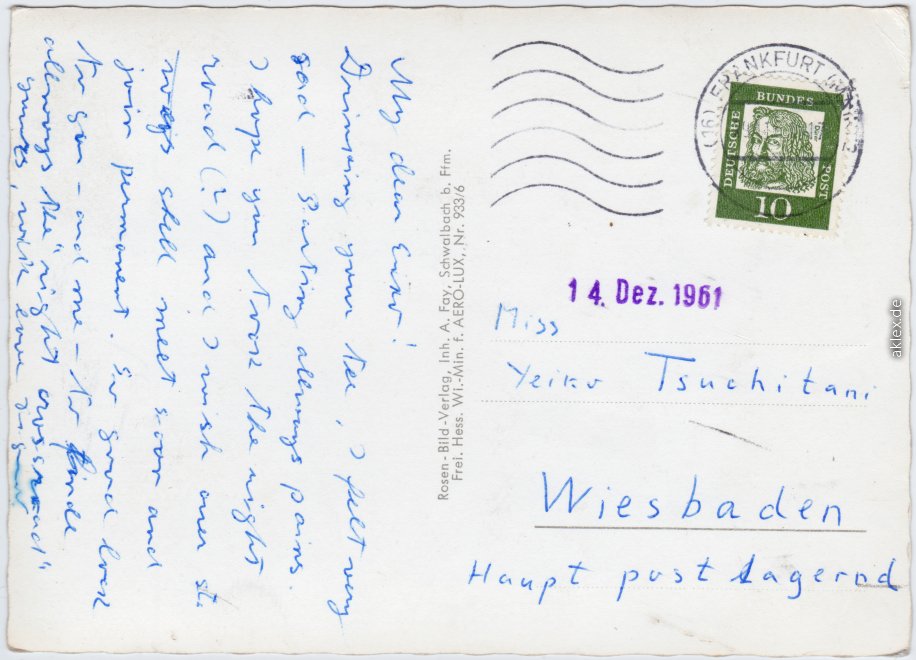 My dear Eiko!
Drinking your tea, I felt very
sad — Parting allways pains.
I hope you took the right
road (?) and I wish our
ways shell meet soon and
join permanent. So good look
to you – and me – to finde
allways the "right crossroad"
yours, with love
Rosen-Bild-Verlag, Inh. A. Fay, Schwalbach b. Ffm.
Frei. Hess. Wi.-Min. f. AERO-LUX, Nr. 933/6
(16) FRANKFURT
DEUTSCHE BUNDESPOST
10
14. Dez. 1961
Miss
Yeiko Tsuchitani
Wiesbaden
Hauptpostlagernd
aklex.de